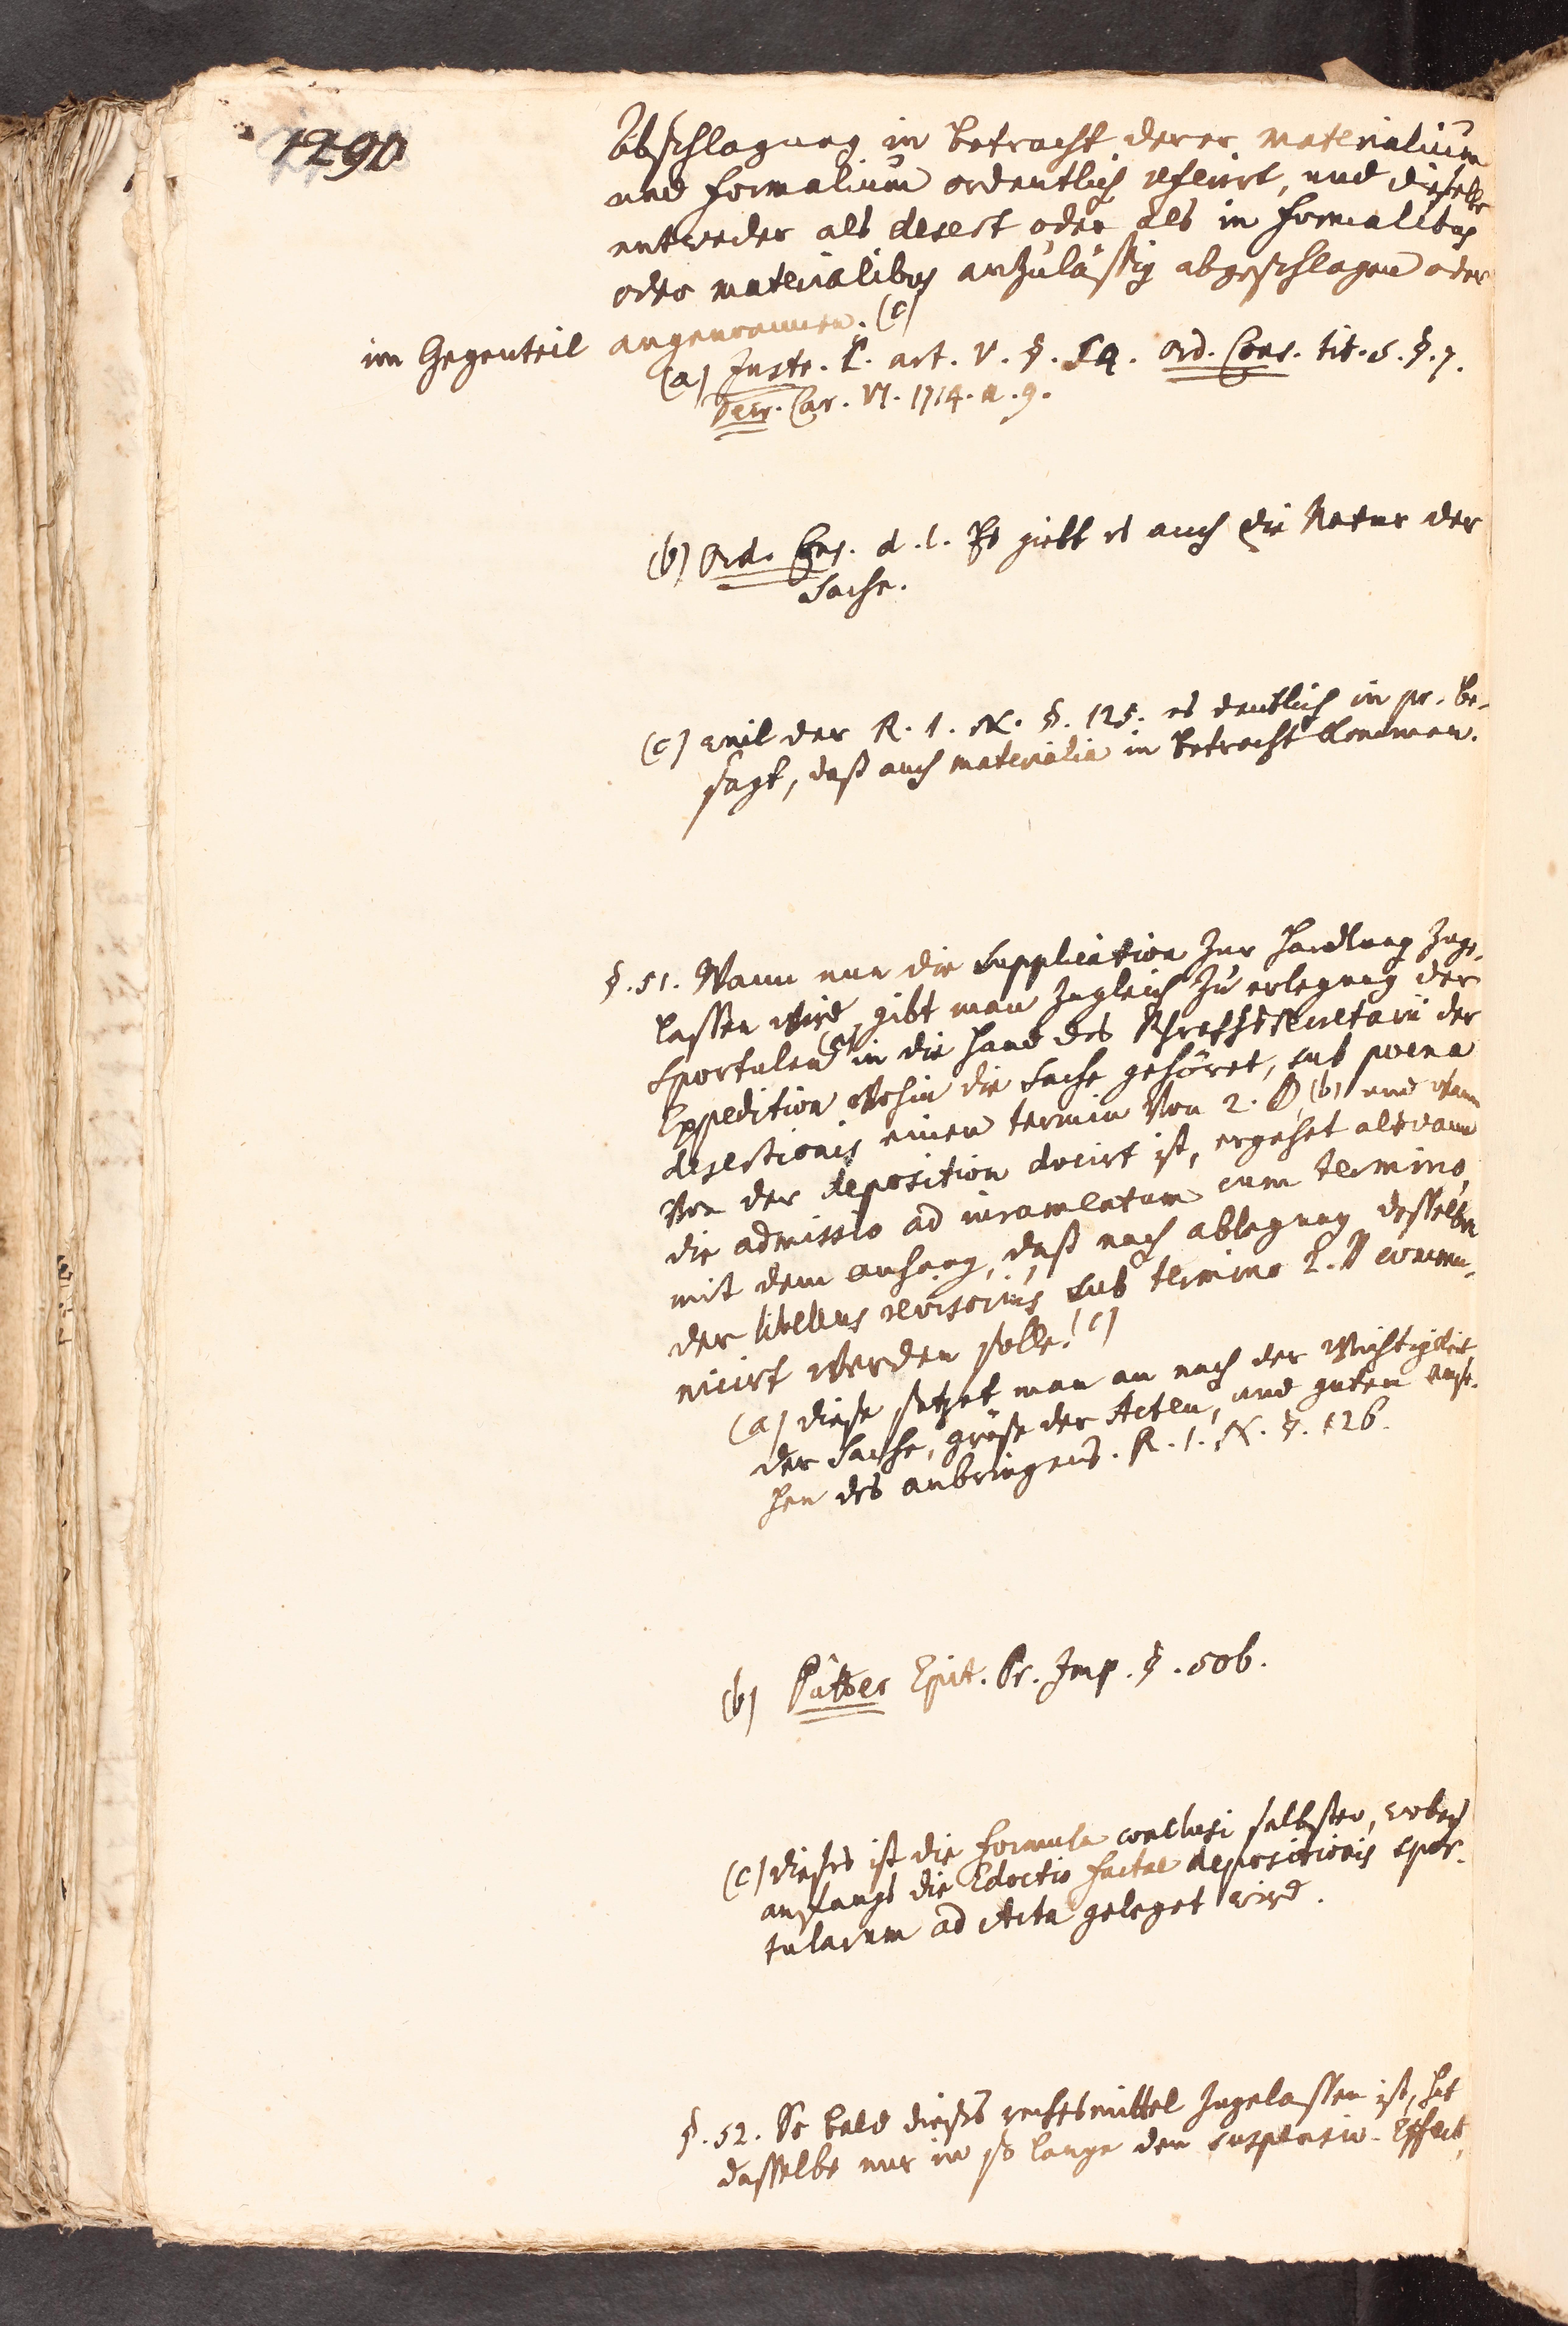 1290
Abschlagung in betracht derer materialium
und formalium ordentlich referirt, und dieselbe
entweder als desert oder als in formalibus
oder materialibus unzuläßig abgeschlagen oder
im Gegenteil angenommen. (c)
(a) Instr. art. V. §. 54. Ord. Cons. tit. 5. §. 7.
Decr. Car. VI. 1714. n. 9.
(b) Ord. Cons. d. l. Es giebt es auch die Natur der
Sache.
(c) weil der R. I. N. §. 125. es deutlich in pr. be-
sagt, daß auch materialia in betracht kommen.
§. 51. Wann nun die Supplication zur Handlung zuge-
lassen wird, gibt man zugleich zu erlegung der
Sportulen (a) in die Hand des Secretarii der
Expedition wohin die Sache gehöret, sub poena
desertionis einen termin von 2. (b) und wann
von der deposition docirt ist, ergehet alsdann
die admissio ad iuramentum cum termino,
mit dem anhang, daß nach ablegung desselben
der libellus revisorius sub termino 2. commu-
nicirt werden solle. (c)
(a) diese setzet man an nach der Wichtigkeit
der Sache, größe der Acten, und guten anse-
hen des anbringens. R. I. N. §. 126.
(b) Pütter Epit. Pr. Imp. §. 506.
(c) dieses ist die formula conclusi selbsten, wobey
anfangs die Edoctio factae depositionis spor-
tularum ad Acta geleget wird.
§. 52. So bald dieses rechtsmittel zugelassen ist, hat
dasselbe nur in so lange den suspensiv-Effect,